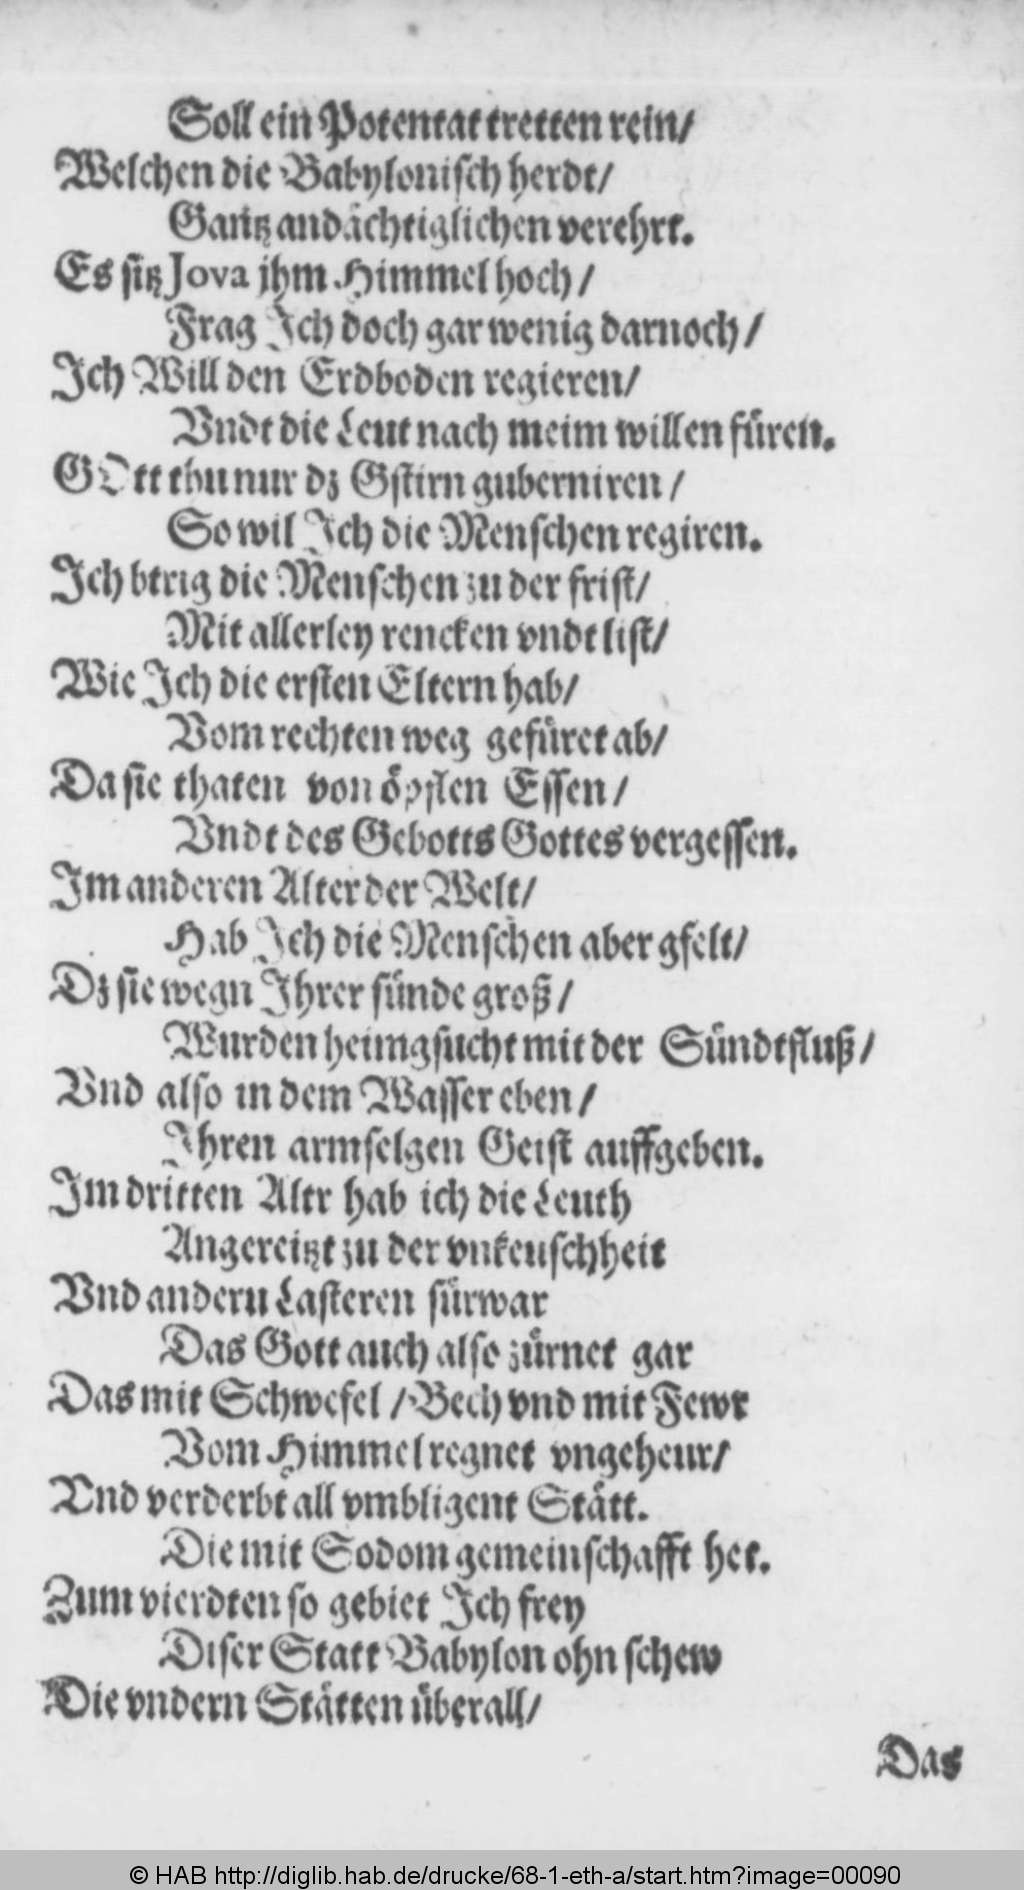 Soll ein Potentat tretten rein/
Welchen die Babylonisch herdt/
Gantz andächtiglichen verehrt.
Es sitz Jova jhm Himmel hoch/
Frag Ich doch gar wenig darnoch/
Ich Will den Erdboden regieren/
Vndt die Leut nach meim willen füren.
GOtt thu nur dz Gstirn guberniren/
So wil Ich die Menschen regiren.
Ich btrig die Menschen zu der frist/
Mit allerley rencken vndt list/
Wie Ich die ersten Eltern hab/
Vom rechten weg gefüret ab/
Da sie thaten von öpflen Essen/
Vndt des Gebotts Gottes vergessen.
Im anderen Alter der Welt/
Hab Ich die Menschen aber gfelt/
Dz sie wegn Ihrer sünde groß/
Wurden heimgsucht mit der Sündtfluß/
Vnd also in dem Wasser eben/
Ihren armselgen Geist auffgeben.
Im dritten Altr hab ich die Leuth
Angereitzt zu der vnkeuschheit
Vnd andern Lasteren fürwar
Das Gott auch also zürnet gar
Das mit Schwefel/Bech vnd mit Fewr
Vom Himmel regnet vngeheur/
Vnd verderbt all vmbligent Stätt.
Die mit Sodom gemeinschafft het.
Zum vierdten so gebiet Ich frey
Diser Statt Babylon ohn schew
Die vndern Stätten überall/
Das
© HAB http://diglib.hab.de/drucke/68-1-eth-a/start.htm?image=00090